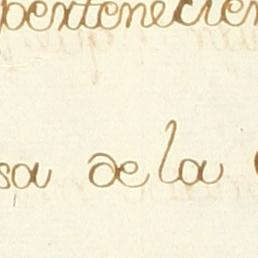 pextenecien
sa de la